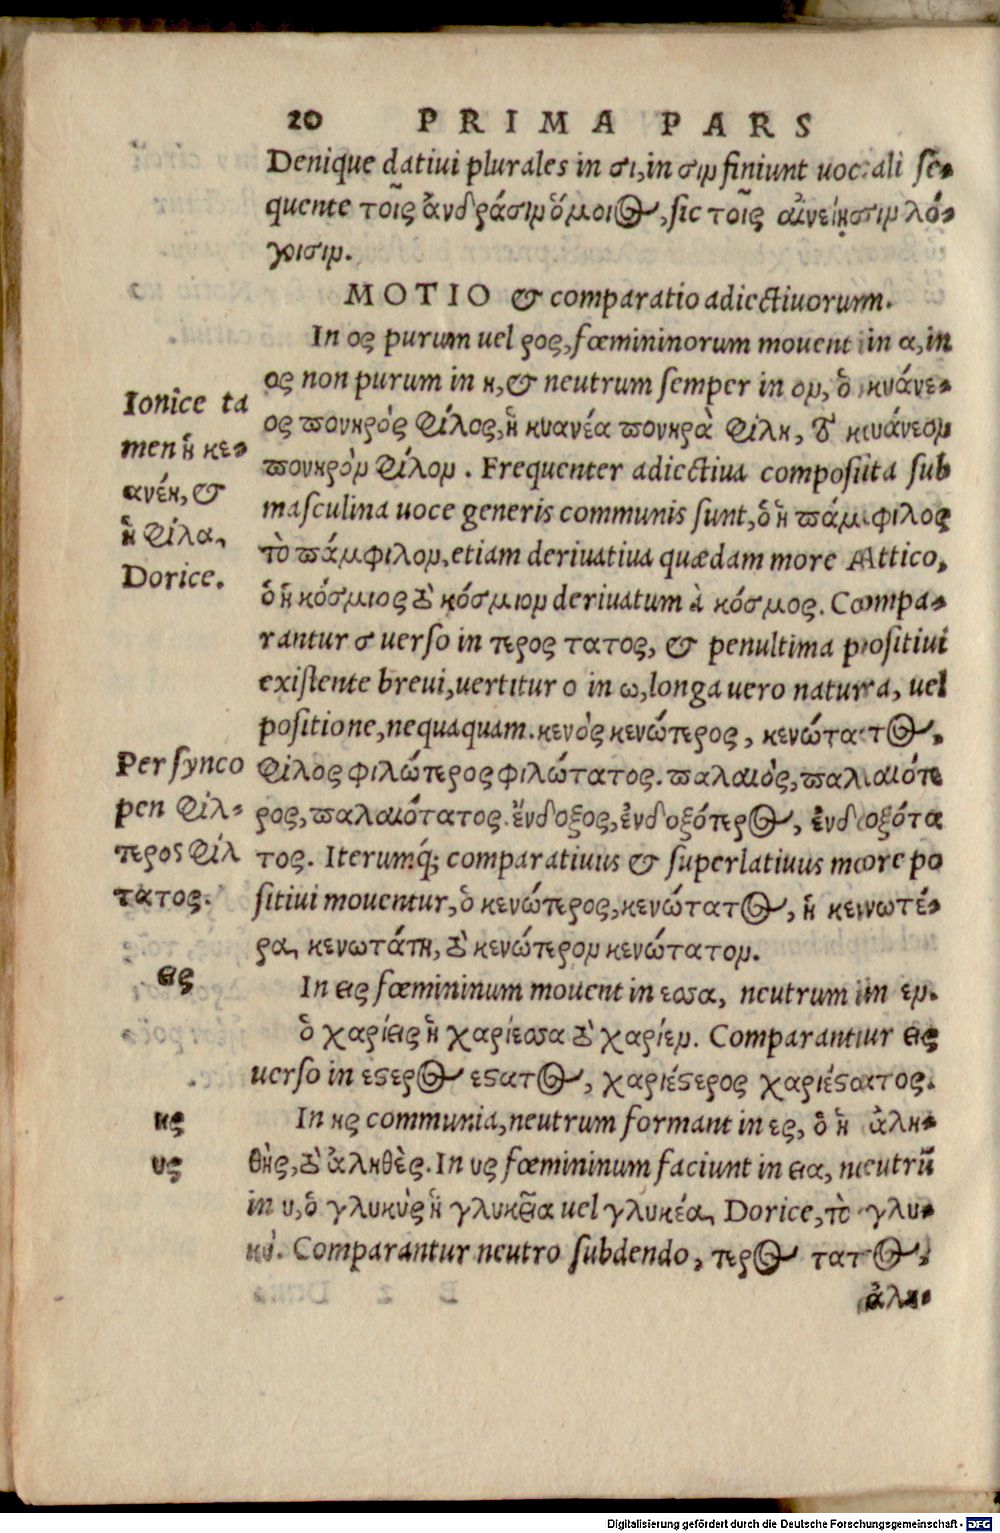 20 PRIMA PARS
Denique dativi plurales in σι, in σιν finiunt vocali se-
quente τοῖς ἀνδράσιν ὅμοιος, sic τοῖς αἰνείησιν λό-
γοισιν.
MOTIO & comparatio adiectivorum.
In ος purum vel ρος, fœmininorum movent in α, in
ος non purum in η, & neutrum semper in ον, ὁ κυάνε-
ος πονηρός φίλος, ἡ κυανέα πονηρὰ φίλη, τὸ κυάνεον
πονηρὸν φίλον. Frequenter adiectiva composita sub
masculina uoce generis communis sunt, ὁ ἡ πάμφιλος
τὸ πάμφιλον, etiam derivativa quædam more Attico,
ὁ ἡ κόσμιος τὸ κόσμιον derivatum à κόσμος. Compa-
rantur σ verso in τερος τατος, & penultima positivi
existente brevi, vertitur ο in ω, longa vero natura, vel
positione, nequaquam. κενὸς κενώτερος, κενώτατος,
φίλος φιλώτερος φιλώτατος. παλαιὸς, παλαιότε
ρος, παλαιότατος. ἔνδοξος, ἐνδοξότερος, ἐνδοξότα
τος. Iterumq́; comparativus & superlativus more po
sitivi moventur, ὁ κενώτερος, κενώτατος, ἡ κενωτέ-
ρα, κενωτάτη, τὸ κενώτερον κενώτατον.
In εις fœmininum movent in εσσα, neutrum in εν.
ὁ χαρίεις ἡ χαρίεσσα τὸ χαρίεν. Comparantur εις
verso in εστερος εστατος, χαριέστερος χαριέστατος.
In ης communia, neutrum formant in ες, ὁ ἡ ἀλη-
θὴς, τὸ ἀληθὲς. In υς fœmininum faciunt in εια, neutrũ
in υ, ὁ γλυκὺς ἡ γλυκεῖα vel γλυκέα, Dorice, τὸ γλυ-
κύ. Comparantur neutro subdendo, τερος τατος,
ἀλη-
Ionice ta
men ἡ κυ-
ανέη, &
ἡ φίλα,
Dorice.
Per synco
pen φίλ-
τερος φίλ
τατος.
εις
ης
υς
Digitalisierung gefördert durch die Deutsche Forschungsgemeinschaft - DFG